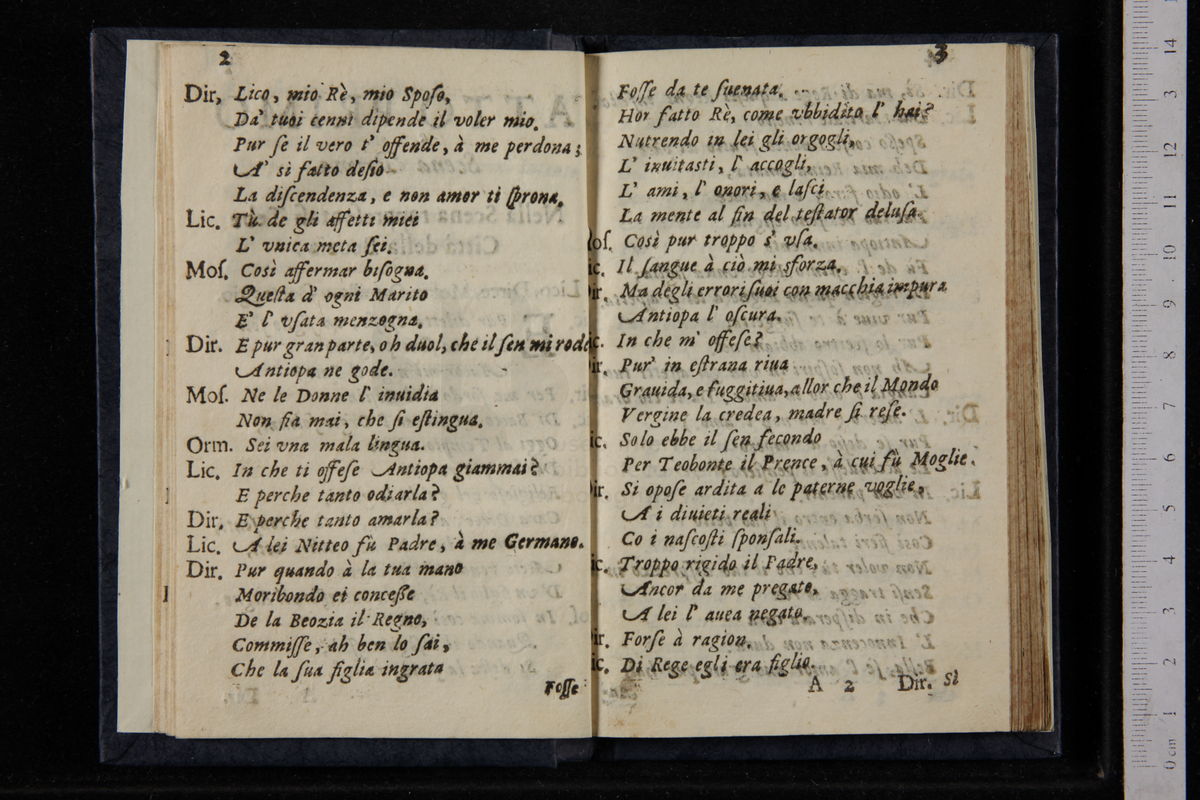 2
Dir, Lico, mio Rè, mio Spoſo,
Da' tuoi cenni dipende il voler mio.
Pur ſe il vero t' offende, à me perdona;
A' sì fatto deſio
La diſcendenza, e non amor ti ſprona.
Lic. Tù de gli affetti miei
L' vnica meta ſei.
Moſ. Così affermar biſogna.
Queſta d' ogni Marito
E' l' vſata menzogna.
Dir. E pur gran parte, oh duol, che il ſen mi rode
Antiopa ne gode.
Moſ. Ne le Donne l' inuidia
Non fia mai, che ſi eſtingua.
Orm. Sei vna mala lingua.
Lic. In che ti offeſe Antiopa giammai?
E perche tanto odiarla?
Dir. E perche tanto amarla?
Lic. A lei Nitteo fù Padre, à me Germano.
Dir. Pur quando à la tua mano
Moribondo ei conceſſe
De la Beozia il Regno,
Commiſſe, ah ben lo ſai,
Che la ſua figlia ingrata
Foſſe
3
Foſſe da te ſuenata.
Hor fatto Rè, come vbbidito l' hai?
Nutrendo in lei gli orgogli,
L' inuitasti, l' accogli,
L' ami, l' onori, e laſci
La mente al fin del teſtator deluſa.
oſ. Così pur troppo s' vſa.
ic. Il ſangue à ciò mi sforza.
ir. Ma degli errori ſuoi con macchia impura
Antiopa l' oſcura.
ic. In che m' offeſe?
ir. Pur' in eſtrana riua
Grauida, e fuggitiua, allor che il Mondo
Vergine la credea, madre ſi reſe.
ic. Solo ebbe il ſen fecondo
Per Teobonte il Prence, à cui fù Moglie.
ir. Si opoſe ardita a le paterne voglie,
A i diuieti reali
Co i naſcoſti ſponſali.
ic. Troppo rigido il Padre,
Ancor da me pregato,
A lei l' auea negato.
ir. Forſe à ragion.
ic. Di Rege egli era figlio.
A 2 Dir. Sì